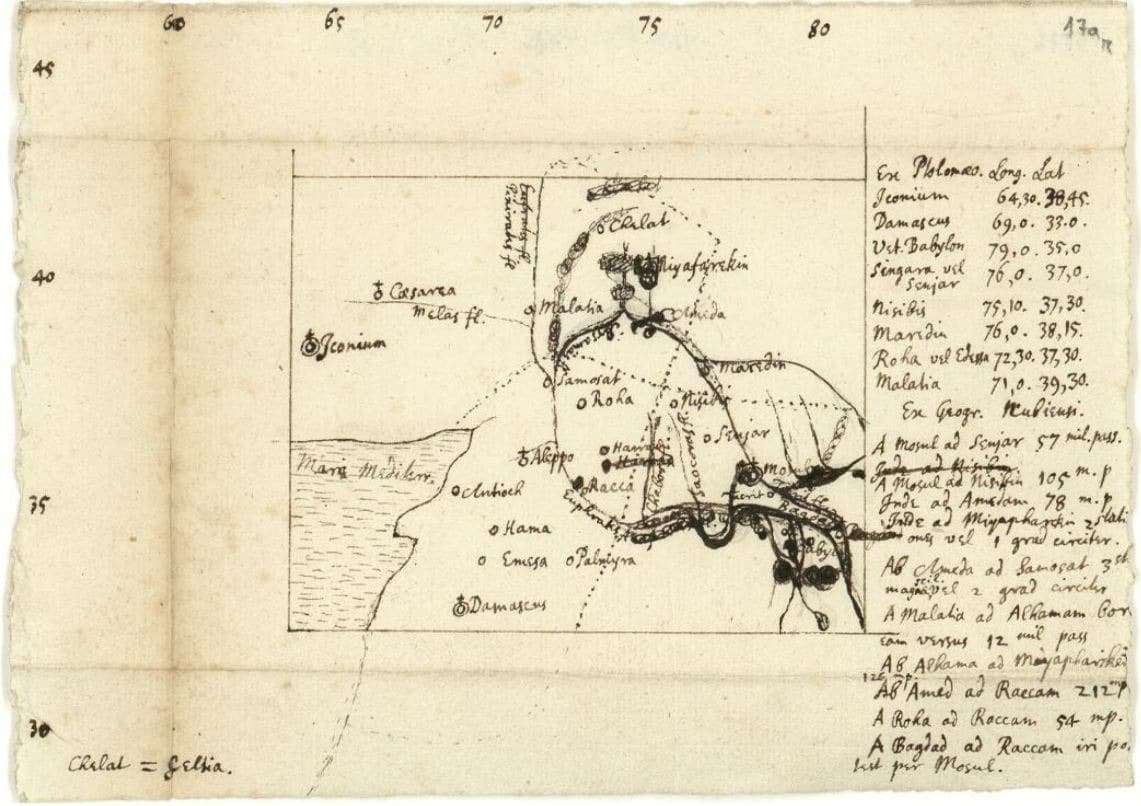 60 65 70 75 80
45
40
35
30
Ex Ptolomæo. Long. Lat
Iconium 64,30. 38,45.
Damascus 69,0. 33.0.
Vet. Babylon 79,0. 35,0
Singara vel
Senjar 76,0. 37,0.
Nisibis 75,10. 37,30.
Maredin 76,0. 38,15.
Roha vel Edessa 72,30. 37,30.
Malatia 71,0. 39,30.
Ex Geogr. Nubiensi.
A Mosul ad Senjar 57 mil. pass.
Inde ad Nisibin.
A Mosul ad Nisibin 105 m. p
Inde ad Amedam 78 m. p
Inde ad Miyapharekin 2 stati
ones vel 1 grad circiter.
Ab Ameda ad Samosat 3 st
magnæ vel 2 grad circiter
A Malatia ad Alhamam bor
eam versus 12 mil pass
Ab Alhama ad
126 mp.
Ab Amed ad Raccam 212 mp
A Roha ad Raccam 54 mp.
A Bagdad ad Raccam iri po
test per Mosul.
Chelat
Miyafarekin
Cæsarea
Melas fl.
Malatia
Ameda
Iconium
Maredin
Samosat
Roha
Nisibis
Senjar
Aleppo
Harran
Mosul
Mare Mediterr.
Antioch
Racca
Euphrates
Hama
Emesa
Palmyra
Damascus
Chelat = Geltia.